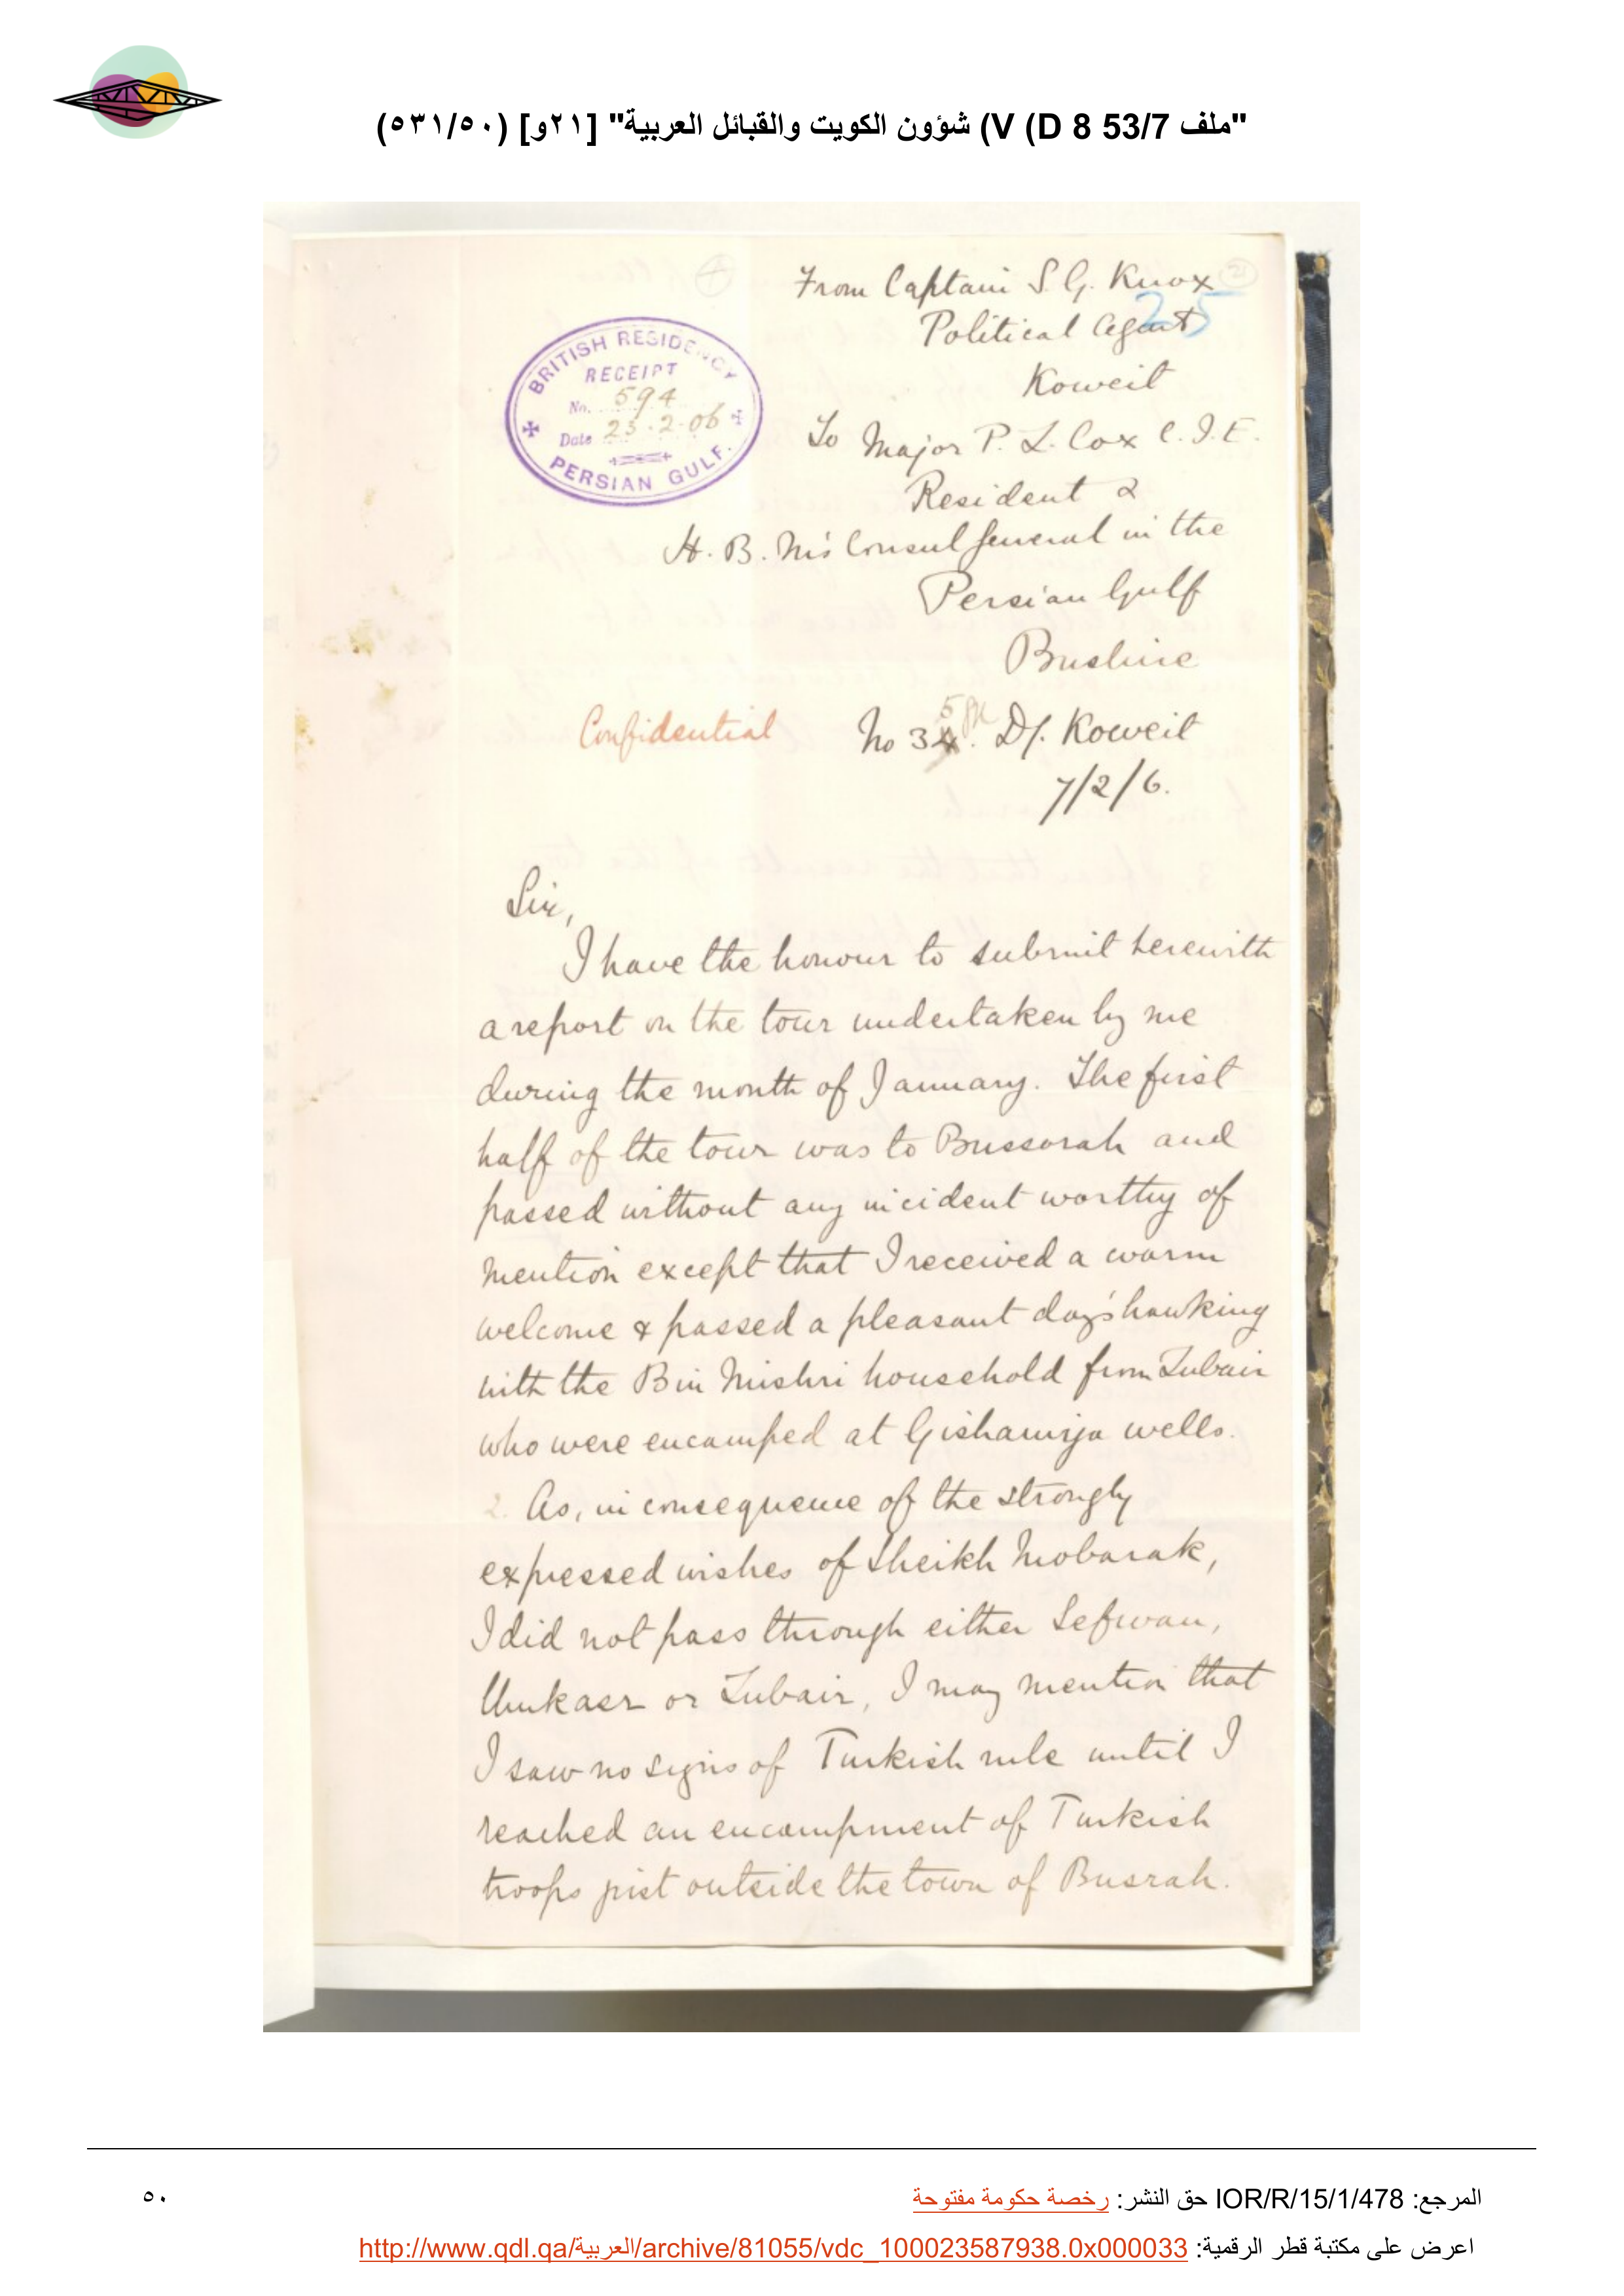 "ملف 53/7 V (D 8) شؤون الكويت والقبائل العربية" [٢١و] (٥٣١/٥٠)
From Captain S. G. Knox
21
25
Political Agent
Koweit
BRITISH RESIDENCY
RECEIPT
No. 594
Date 23.2.06
PERSIAN GULF.
To Major P. Z. Cox C.I.E.
Resident &
H. B. M's Consul General in the
Persian Gulf
Bushire
Confidential
No 35. D/. Koweit
7/2/6.
Sir,
I have the honour to submit herewith
a report on the tour undertaken by me
during the month of January. The first
half of the tour was to Bussorah and
passed without any incident worthy of
mention except that I received a warm
welcome & passed a pleasant day's hawking
with the Bin Mishri household from Zubair
who were encamped at Gishaniya wells.
2. As, in consequence of the strongly
expressed wishes of Sheikh Mobarak,
I did not pass through either Sefwan,
Umkasr or Zubair, I may mention that
I saw no signs of Turkish rule until I
reached an encampment of Turkish
troops just outside the town of Busrah.
المرجع: IOR/R/15/1/478 حق النشر: رخصة حكومة مفتوحة
٥٠
اعرض على مكتبة قطر الرقمية: http://www.qdl.qa/العربية/archive/81055/vdc_100023587938.0x000033